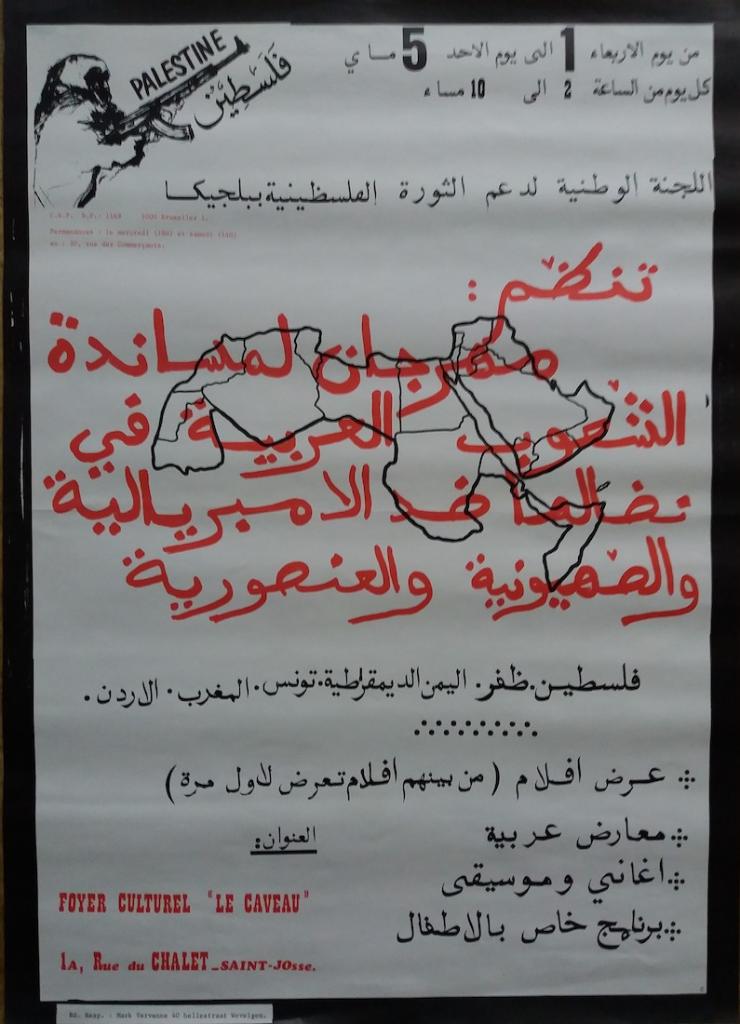 من يوم الاربعاء 1 الى يوم الاحد 5 ماي
كل يوم من الساعة 2 الى 10 مساء
PALESTINE
فلسطين
اللجنة الوطنية لدعم الثورة الفلسطينية ببلجيكا
C.N.P. B.P.: 1169 1000 Bruxelles 1.
Permanences : le mercredi (18H) et samedi (14H)
au : 30, rue des Commerçants.
تنظم :
مهرجان لمساندة
الشعوب العربية في
نضالها ضد الامبريالية
والصهيونية والعنصورية
فلسطين. ظفر. اليمن الديمقراطية. تونس. المغرب. الاردن.
عرض افلام (من بينهم افلام تعرض لاول مرة)
معارض عربية
اغاني وموسيقى
برنامج خاص بالاطفال
العنوان:
FOYER CULTUREL "LE CAVEAU"
1A, Rue du CHALET_SAINT-JOsse.
Ed. Resp. : Mark Vervenne 40 hellestraat Wevelgem.